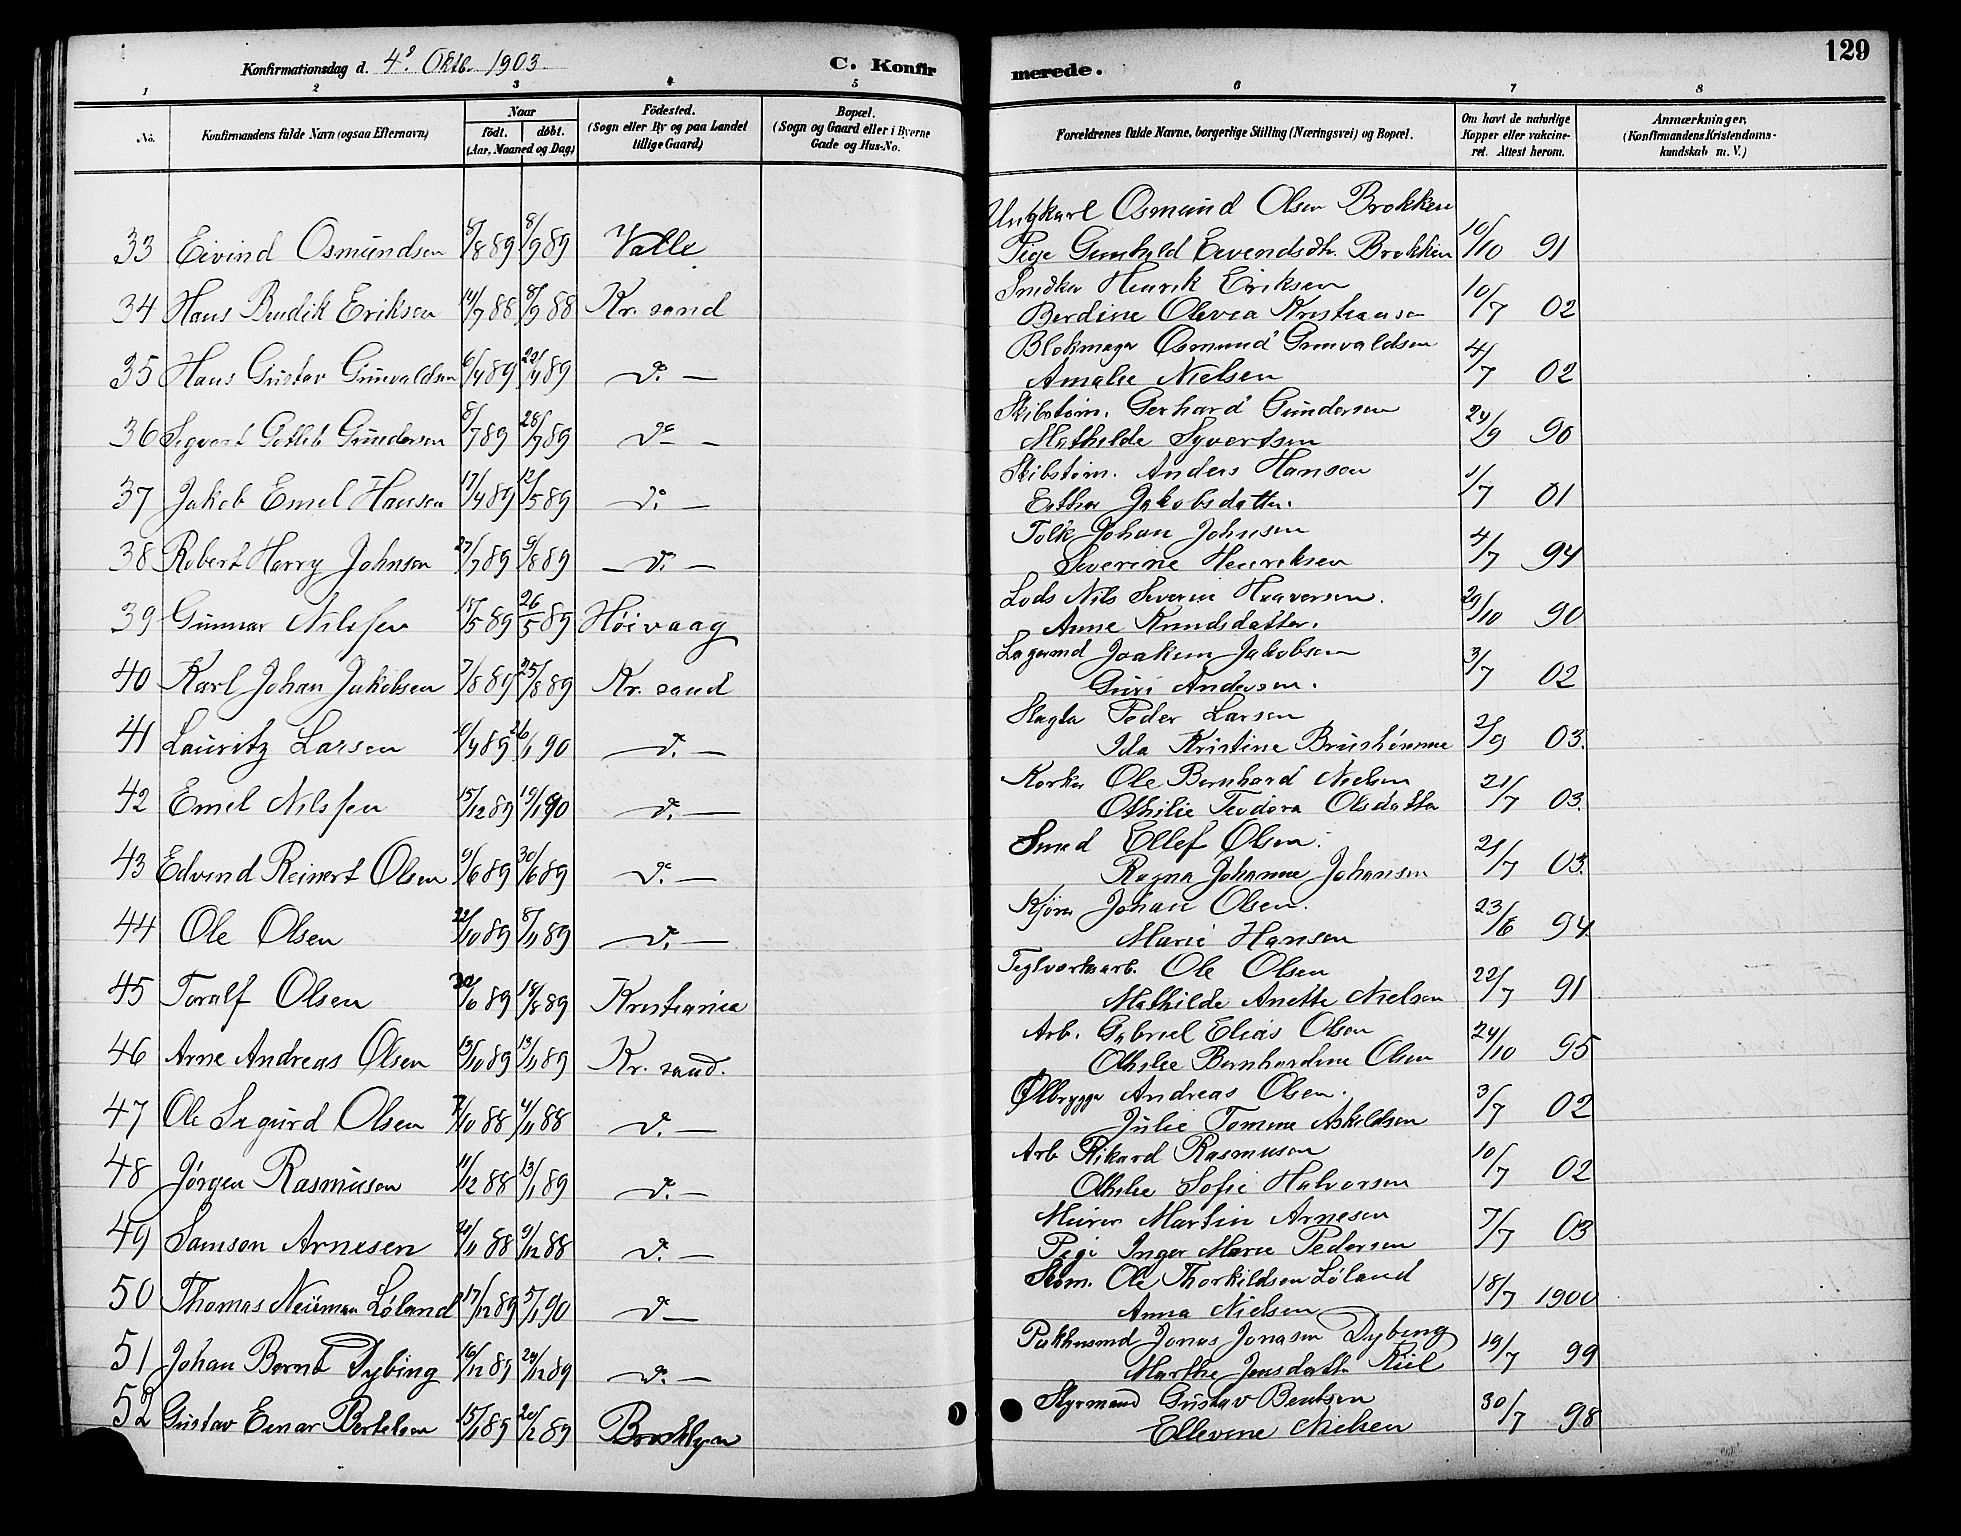 129
Konfirmationsdag d. 4de Oktb. 1903.
C. Konfirmerede.
1 2 3 4 5 6 7 8
No. Konfirmandens fulde Navn (ogsaa Efternavn) Naar födt. döbt. (Aar, Maaned og Dag) Födested. (Sogn eller By og paa Landet tillige Gaard) Bopæl. (Sogn og Gaard eller i Byerne Gade og Hus-No. Forældrenes fulde Navne, borgerlige Stilling (Næringsvei) og Bopæl. Om havt de naturlige Kopper eller vakcineret. Attest herom. Anmærkninger. (Konfirmandens Kristendomskundskab m. V.)
Ungkarl Osmund Olsen Brokken
33 Eivind Osmundsen 8/8 89 8/9 89 Valle Pige Gunhild Eivendsdtr. Brokken 10/10 91
Snedker Henrik Eriksen
34 Hans Bendik Eriksen 14/7 88 8/9 88 Kr. sand Berdine Olevea Kristiansen 10/7 02
Blokmager Osmund Gunvaldsen
35 Hans Gustav Gunvaldsen 6/4 89 22/4 89 do — Amalie Nielsen 4/7 02
Skibstøm. Gerhard Gundersen
36 Sigvart Gotlib Gundersen 8/7 89 28/7 89 do — Mathilde Syvertsen 24/9 90
Skibstøm. Anders Hansen
37 Jakob Emel Hansen 17/4 89 12/5 89 do — Esther Jakobsdatter. 1/7 01
Tolk Johan Johnsen
38 Robert Harry Johnson 27/7 89 9/8 89 — do — Severine Henriksen 4/7 94
Lods Nils Severin Haaversen.
39 Gunnar Nilssen 15/5 89 26/5 89 Höivaag Anne Knudsdatter. 29/10 90
Lagermd Joakim Jakobsen
40 Karl Johan Jakobsen 7/8 89 25/8 89 Kr. sand Guri Andersen. 3/7 02
Slagter Peder Larsen
41 Lauritz Larsen 6/4 89 26/1 90 do — Ida Kristine Brushömme 2/9 03.
Korker Ole Bernhard Nielsen
42 Emel Nilssen 15/12 89 19/1 90 do — Othilie Teodora Olsdatter 21/7 03.
Smed Ellef Olsen.
43 Edvend Reinert Olsen 9/6 89 30/6 89 do — Ragna Johanne Johansen 21/7 03.
Kjører Johan Olsen.
44 Ole Olsen 22/10 89 8/11 89 do — Marie Hansen 23/6 94
Teglværksarb. Ole Olsen
45 Toralf Olsen 89 18/8 89 Kristiania Mathilde Anette Nielsen 22/7 91
Arb. Gabriel Elias Olsen
46 Arne Andreas Olsen 13/10 89 13/11 89 Kr. sand. Othilie Bernhardine Olsen 24/10 95
Ølbrygger Andreas Olsen.
47 Ole Sigurd Olsen 7/10 88 4/11 88 do — Julie Tomine Askildsen 3/7 02
Arb Rikard Rasmusen
48 Jørgen Rasmusen 11/12 88 13/1 89 do — Othilie Sofie Halvorsen 10/7 02
Murer Martin Arnesen
49 Samson Arnesen 20/11 88 9/12 88 do — Pige Inger Marie Pedersen 7/7 03
Støm. Ole Thorkildsen Löland
50 Thomas Neüman Löland 17/12 89 5/1 90 do — Anna Nielsen 18/7 1900
Pakhusmd Jonas Jonasen Dybing
51 Johan Bernt Dybing 16/12 89 29/12 89 do — Marthe Jensdatter Riil 19/7 99
Styrmand Gustav Bentsen
52 Gustav Einar Bertelsen 15/1 89 20/2 89 Brooklyn Ellevine Nielsen 30/7 98